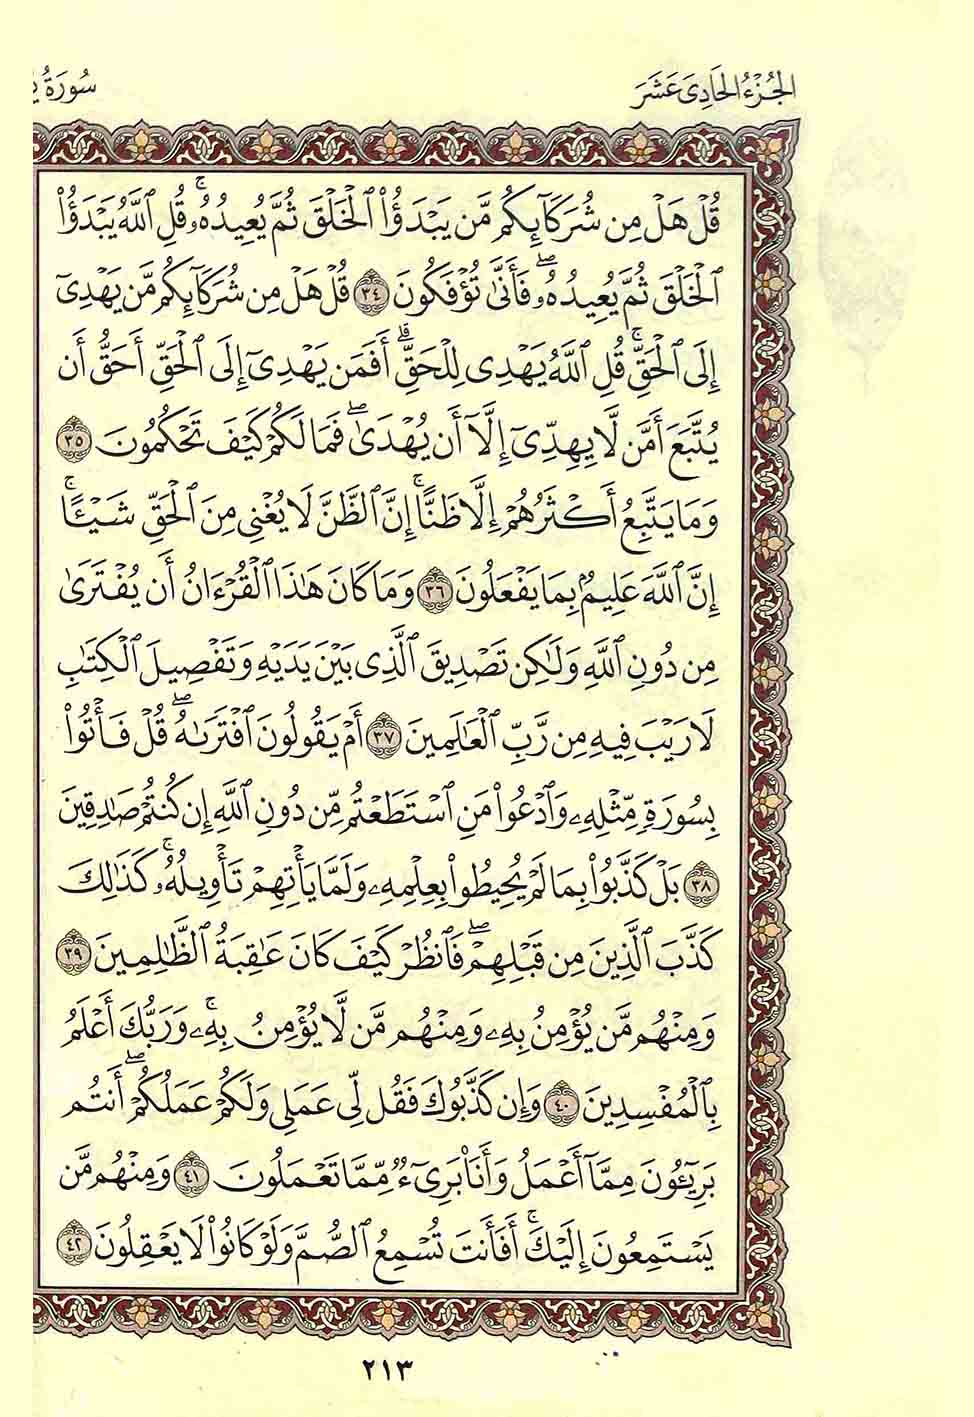 الجُزْءُ الحَادِىَ عَشَرَ
سُورَةُ
قُلْ هَلْ مِن شُرَكَآئِكُم مَّن يَبْدَؤُا۟ ٱلْخَلْقَ ثُمَّ يُعِيدُهُۥ ۚ قُلِ ٱللَّهُ يَبْدَؤُا۟
ٱلْخَلْقَ ثُمَّ يُعِيدُهُۥ ۖ فَأَنَّىٰ تُؤْفَكُونَ ٣٤ قُلْ هَلْ مِن شُرَكَآئِكُم مَّن يَهْدِىٓ
إِلَى ٱلْحَقِّ ۚ قُلِ ٱللَّهُ يَهْدِى لِلْحَقِّ ۗ أَفَمَن يَهْدِىٓ إِلَى ٱلْحَقِّ أَحَقُّ أَن
يُتَّبَعَ أَمَّن لَّا يَهِدِّىٓ إِلَّآ أَن يُهْدَىٰ ۖ فَمَا لَكُمْ كَيْفَ تَحْكُمُونَ ٣٥
وَمَا يَتَّبِعُ أَكْثَرُهُمْ إِلَّا ظَنًّا ۚ إِنَّ ٱلظَّنَّ لَا يُغْنِى مِنَ ٱلْحَقِّ شَيْـًٔا ۚ
إِنَّ ٱللَّهَ عَلِيمٌۢ بِمَا يَفْعَلُونَ ٣٦ وَمَا كَانَ هَـٰذَا ٱلْقُرْءَانُ أَن يُفْتَرَىٰ
مِن دُونِ ٱللَّهِ وَلَـٰكِن تَصْدِيقَ ٱلَّذِى بَيْنَ يَدَيْهِ وَتَفْصِيلَ ٱلْكِتَـٰبِ
لَا رَيْبَ فِيهِ مِن رَّبِّ ٱلْعَـٰلَمِينَ ٣٧ أَمْ يَقُولُونَ ٱفْتَرَىٰهُ ۖ قُلْ فَأْتُوا۟
بِسُورَةٍ مِّثْلِهِۦ وَٱدْعُوا۟ مَنِ ٱسْتَطَعْتُم مِّن دُونِ ٱللَّهِ إِن كُنتُمْ صَـٰدِقِينَ
٣٨ بَلْ كَذَّبُوا۟ بِمَا لَمْ يُحِيطُوا۟ بِعِلْمِهِۦ وَلَمَّا يَأْتِهِمْ تَأْوِيلُهُۥ ۚ كَذَٰلِكَ
كَذَّبَ ٱلَّذِينَ مِن قَبْلِهِمْ ۖ فَٱنظُرْ كَيْفَ كَانَ عَـٰقِبَةُ ٱلظَّـٰلِمِينَ ٣٩
وَمِنْهُم مَّن يُؤْمِنُ بِهِۦ وَمِنْهُم مَّن لَّا يُؤْمِنُ بِهِۦ ۚ وَرَبُّكَ أَعْلَمُ
بِٱلْمُفْسِدِينَ ٤٠ وَإِن كَذَّبُوكَ فَقُل لِّى عَمَلِى وَلَكُمْ عَمَلُكُمْ ۖ أَنتُم
بَرِيٓـُٔونَ مِمَّآ أَعْمَلُ وَأَنَا۠ بَرِىٓءٌ مِّمَّا تَعْمَلُونَ ٤١ وَمِنْهُم مَّن
يَسْتَمِعُونَ إِلَيْكَ ۚ أَفَأَنتَ تُسْمِعُ ٱلصُّمَّ وَلَوْ كَانُوا۟ لَا يَعْقِلُونَ ٤٢
٢١٣